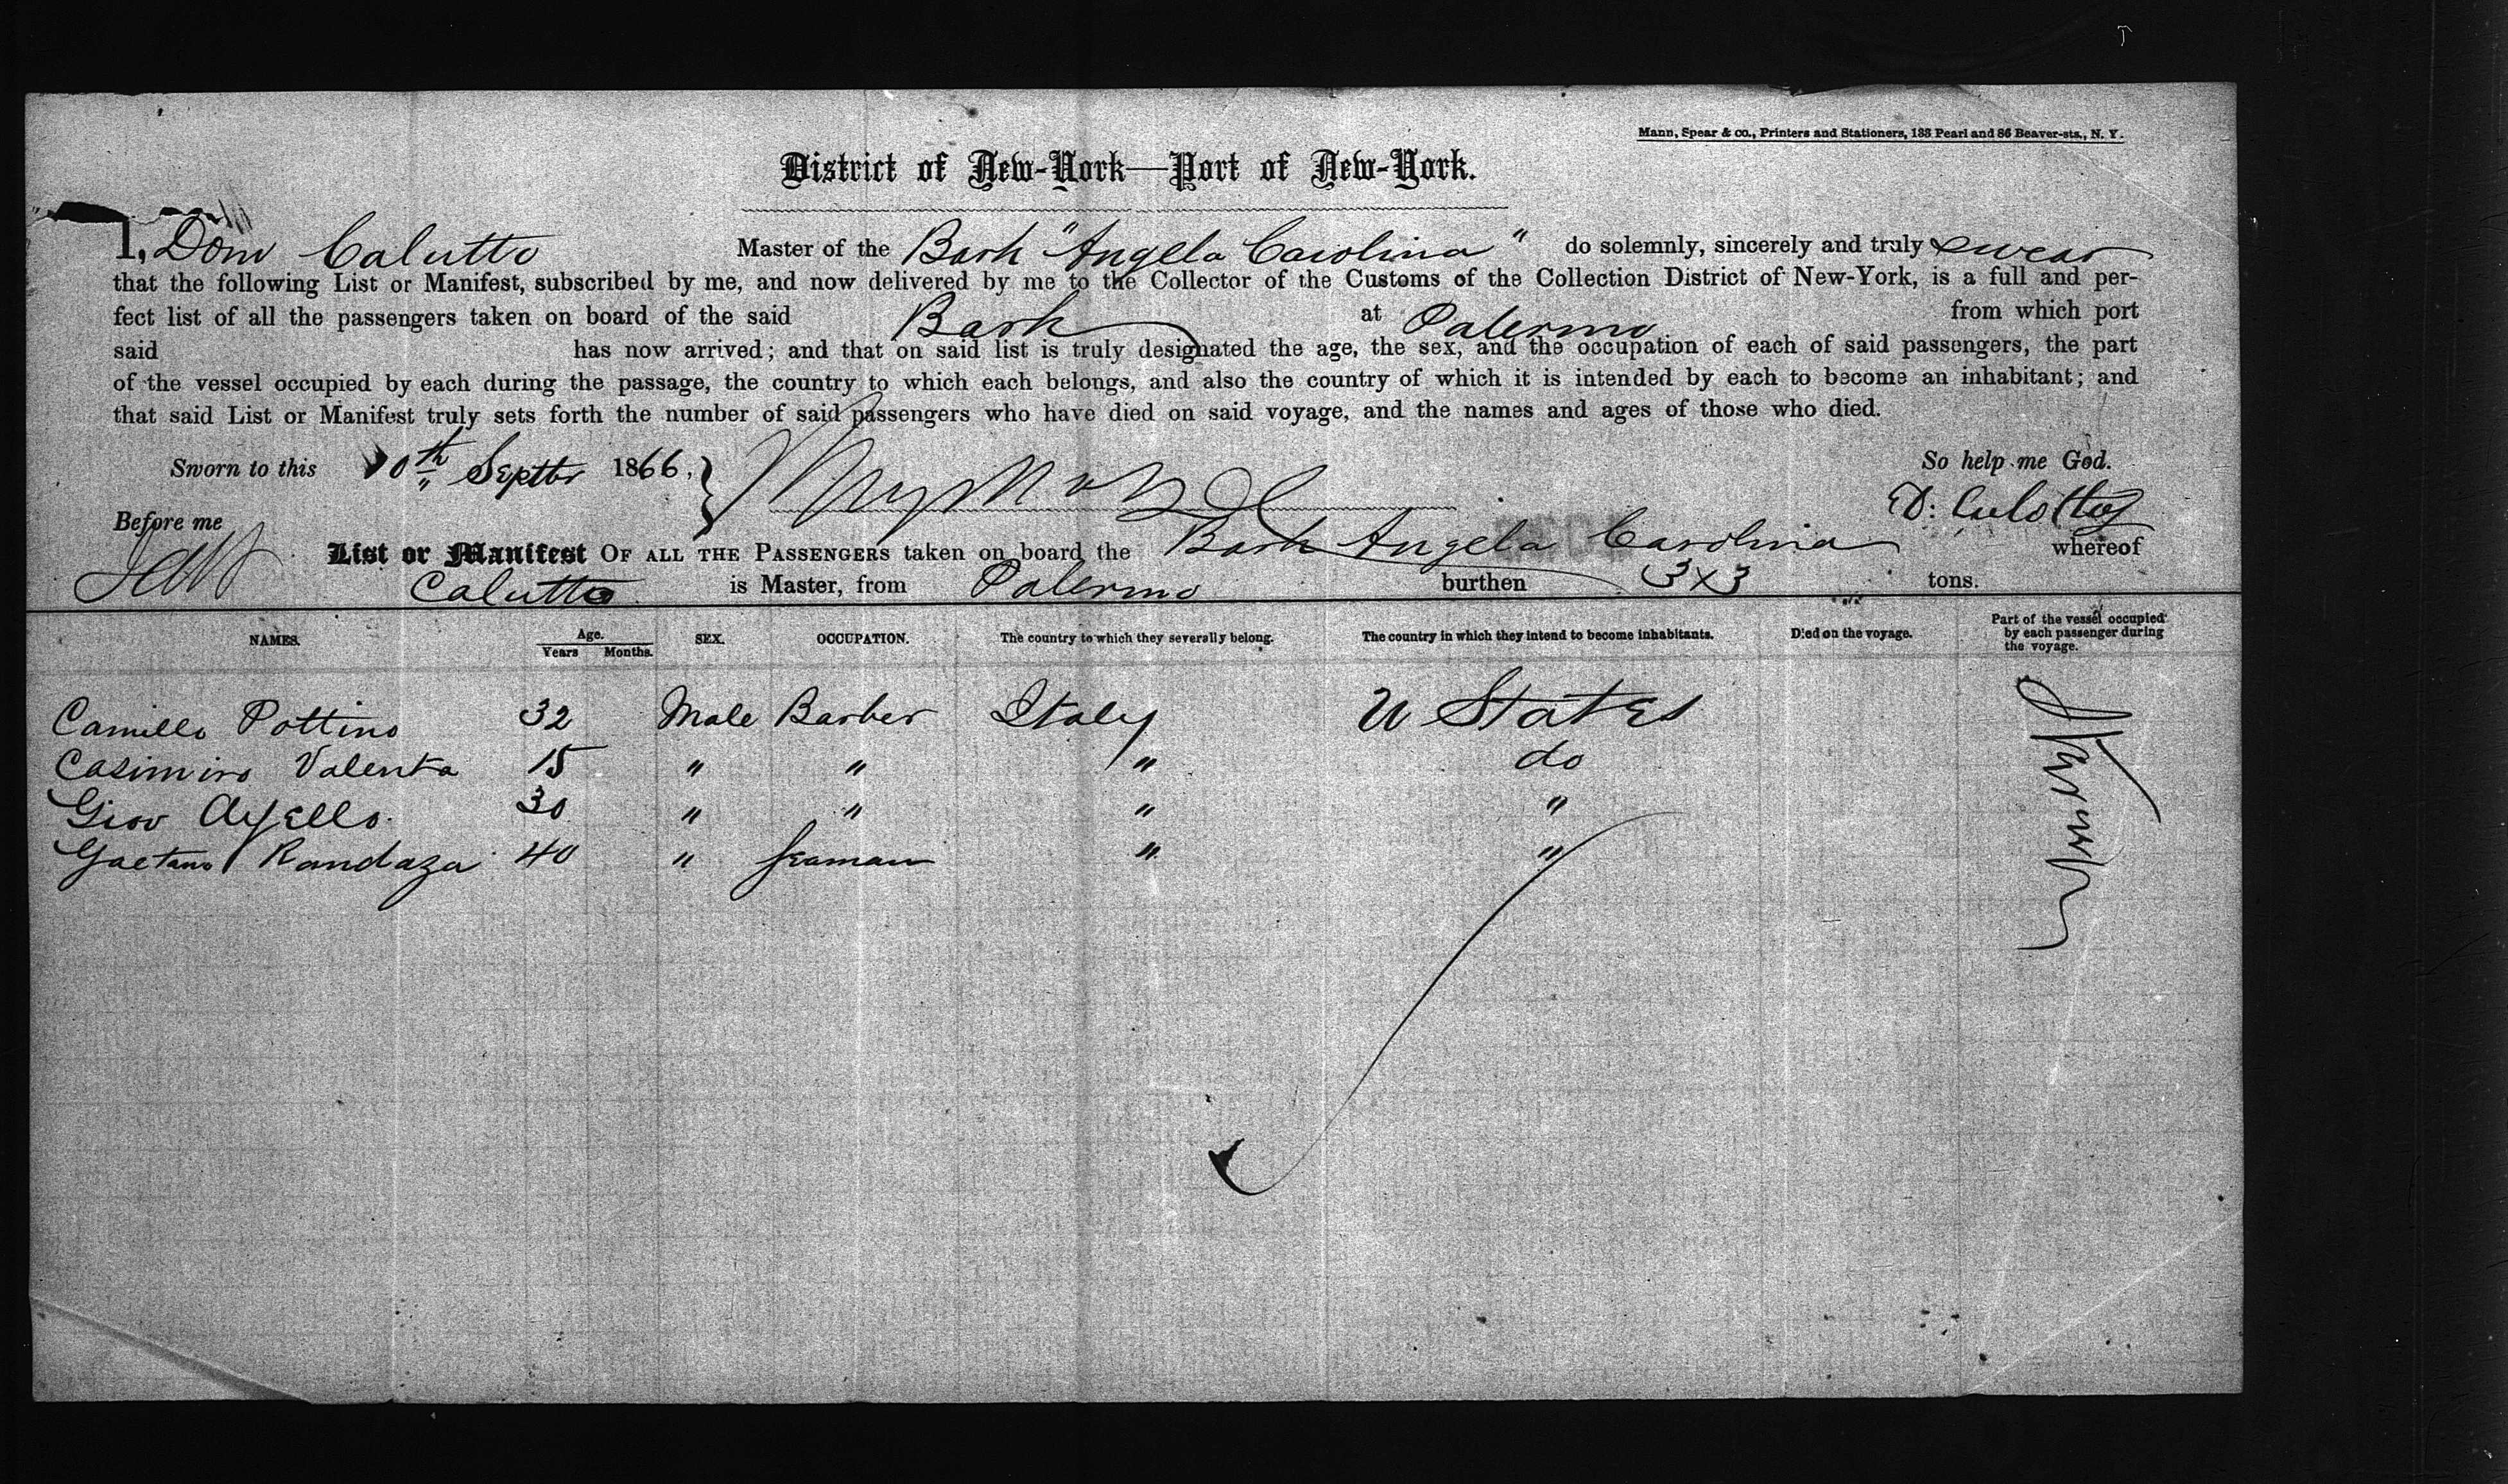 Mann, Spear & co., Printers and Stationers, 133 Pearl and 86 Beaver-sts., N. Y.
District of New-York—Port of New-York.
I, Dom Calutto Master of the Bark "Angela Carolina" do solemnly, sincerely and truly swear
that the following List or Manifest, subscribed by me, and now delivered by me to the Collector of the Customs of the Collection District of New-York, is a full and per-
fect list of all the passengers taken on board of the said Bark at Palermo from which port
said has now arrived; and that on said list is truly designated the age, the sex, and the occupation of each of said passengers, the part
of the vessel occupied by each during the passage, the country to which each belongs, and also the country of which it is intended by each to become an inhabitant; and
that said List or Manifest truly sets forth the number of said passengers who have died on said voyage, and the names and ages of those who died.
Sworn to this 10th Septbr 1866, So help me God.
Before me D: Culotta
List or Manifest OF ALL THE PASSENGERS taken on board the Bark Angela Carolina whereof
Calutto is Master, from Palermo burthen 3x3 tons.
NAMES. Age. Years Months. SEX. OCCUPATION. The country to which they severally belong. The country in which they intend to become inhabitants. Died on the voyage. Part of the vessel occupied by each passenger during the voyage.
Camillo Pottino 32 Male Barber Italy U States
Casimiro Valenta 15 " " " do
Giov Ayello. 30 " " " "
Gaetano Randaza 40 " Seaman " "